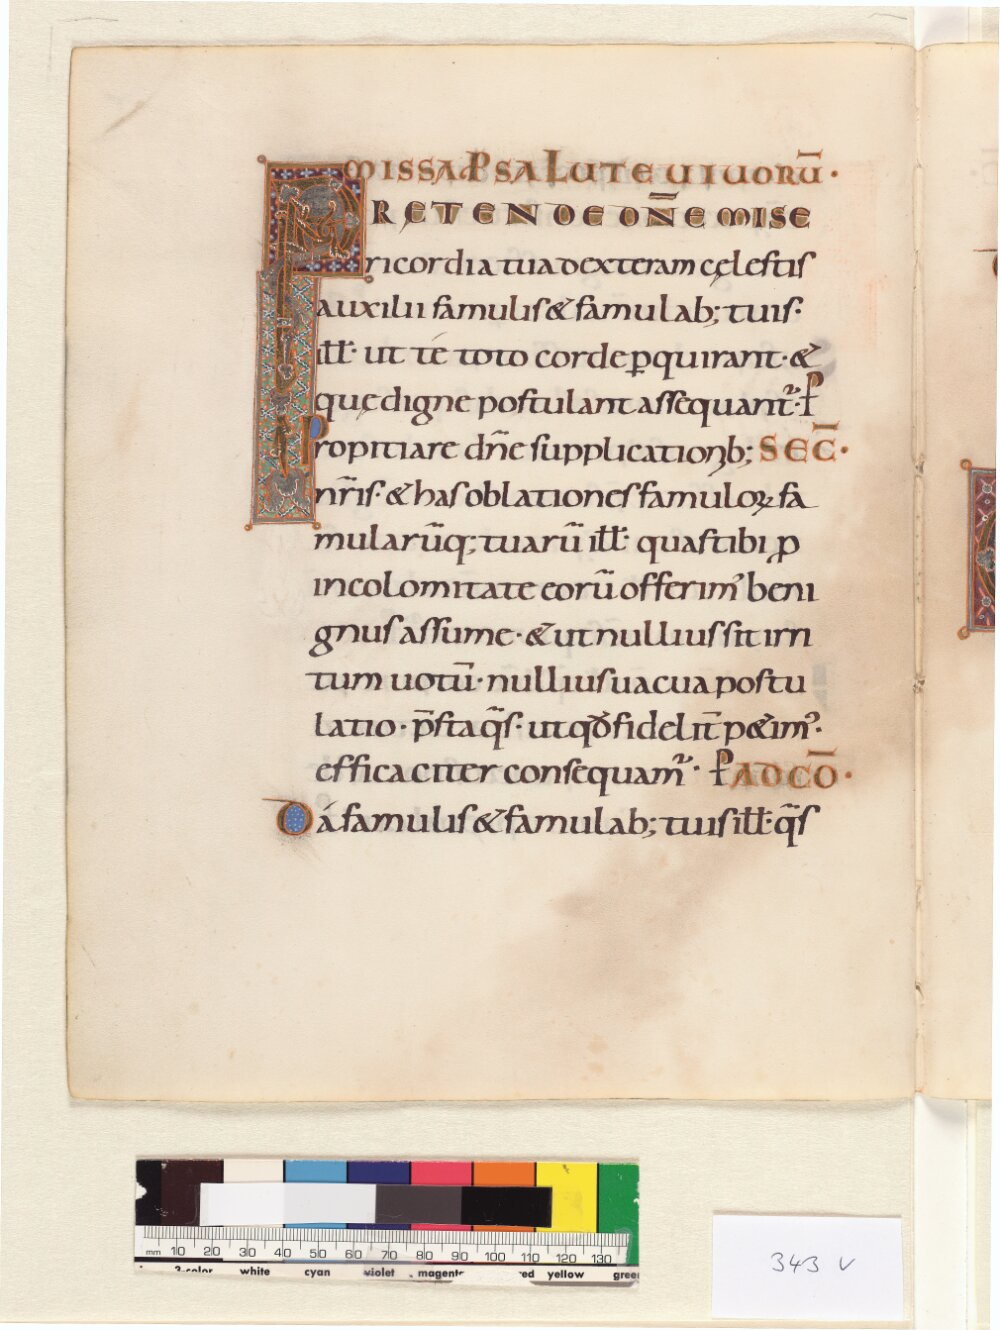 MISSA P SALUTE UIUORŪ·
PRETENDE DÑE MISE
ricordia tua dexteram cęlestis
auxilii famulis & famulab; tuis·
ill̅· ut té toto corde ꝑquirant· &
quę digne postulant assequant᷑· P̱
Propitiare dn̄e supplicationib; SEC̄·
nr̄is· & has oblationes famuloꝝ fa
mularūq; tuarū ill̅· quas tibi ꝓ
incolomitate eorū offerim᾽ beni
gnus assume· & ut nullius sit irri
tum uotū· nullius uacua postu
latio· p̄sta q̄s· ut qđ fidelit̄ p&im᾽·
efficaciter consequam᷑· P̱ AD CŌ·
Dá famulis & famulab; tuis ill̅· q̄s
343 v
mm 10 20 30 40 50 60 70 80 90 100 110 120 130
3-color white cyan violet magenta red yellow green